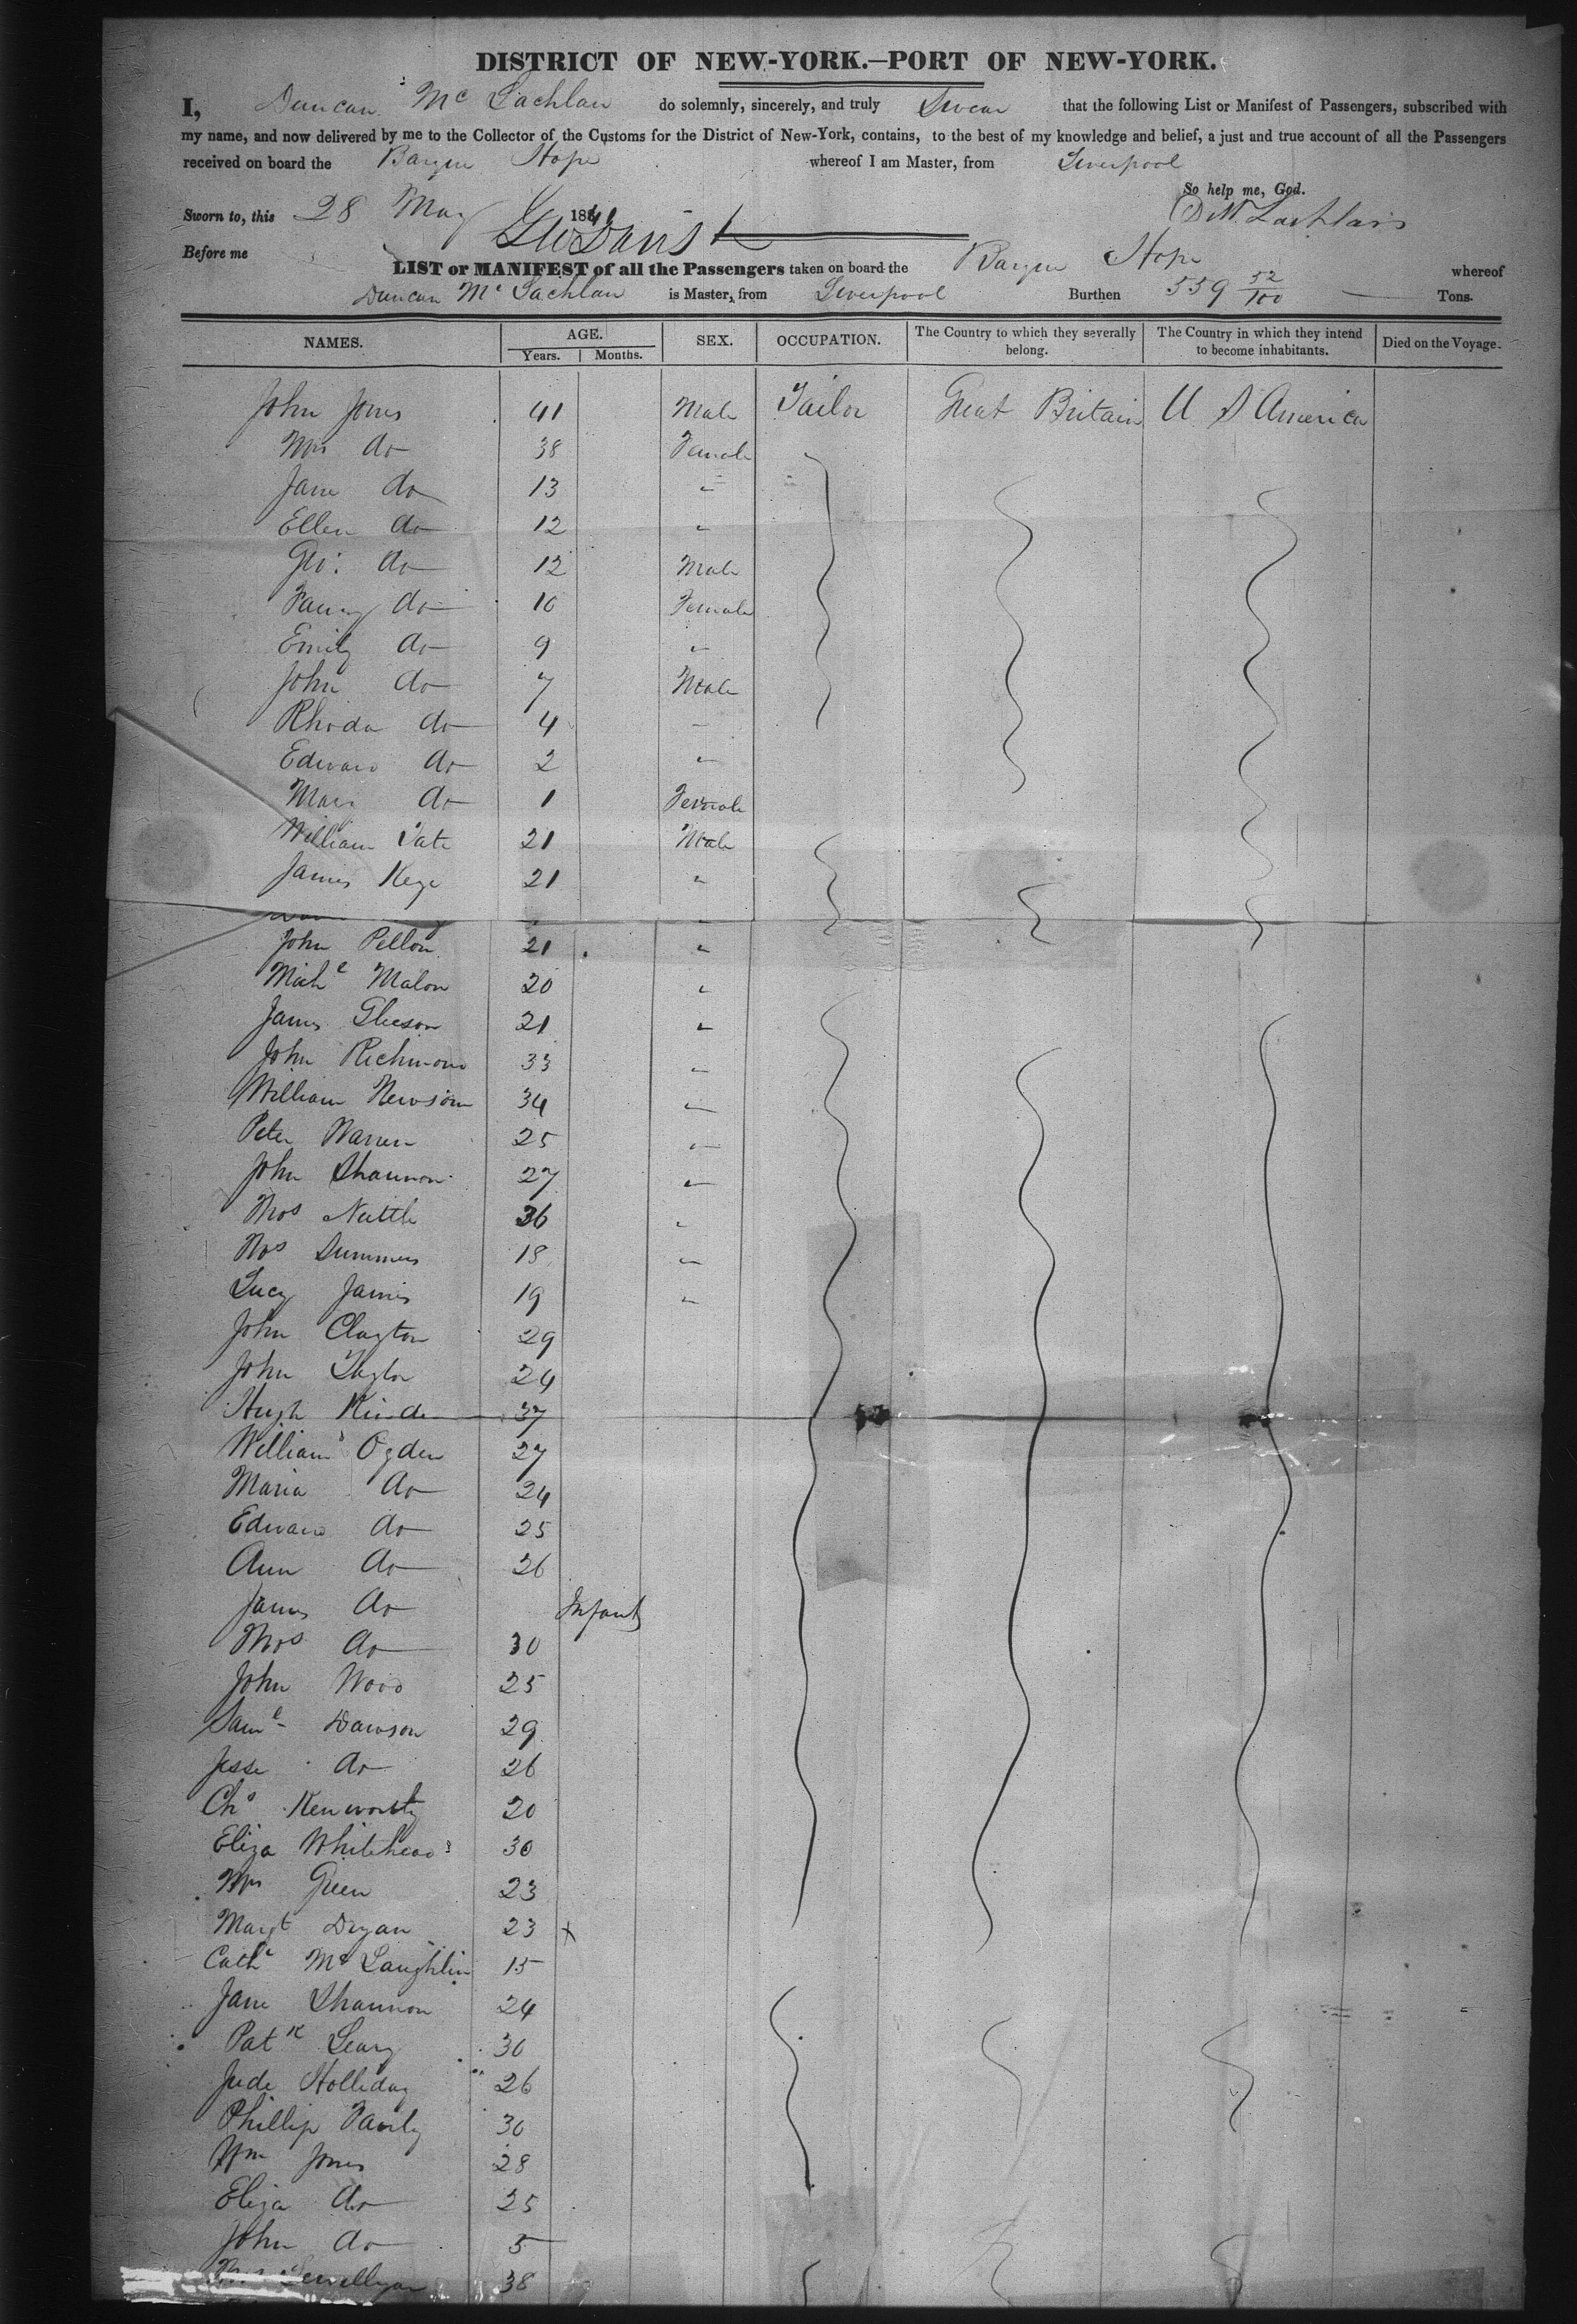 DISTRICT OF NEW-YORK.—PORT OF NEW-YORK.
I, Duncan Mc Lachlan do solemnly, sincerely, and truly Swear that the following List or Manifest of Passengers, subscribed with
my name, and now delivered by me to the Collector of the Customs for the District of New-York, contains, to the best of my knowledge and belief, a just and true account of all the Passengers
received on board the Barque Hope whereof I am Master, from Liverpool
So help me, God.
Sworn to, this 28 May 184 D Mc Lachlan
Before me
LIST or MANIFEST of all the Passengers taken on board the Barque Hope whereof
Duncan Mc Lachlan is Master, from Liverpool Burthen 559 52/100 Tons.
NAMES. AGE. SEX. OCCUPATION. The Country to which they severally belong. The Country in which they intend to become inhabitants. Died on the Voyage.
Years. Months.
John Jones 41 Male Tailor Great Britain U S America
Mrs do 38 Female
Jane do 13 "
Ellen do 12 "
Geo: do 12 Male
Fanny do 10 Female
Emily do 9 "
John do 7 Male
Rhoda do 4 "
Edward do 2 "
Mary do 1 Female
William Tate 21 Male
James 21 "
John 21 "
Michl Malon 20 "
James Gleeson 21 "
John Richmond 33 "
William Newsom 34 "
Peter Warren 25 "
John Shannon 27 "
Thos Nuttle 36 "
Thos Summers 18 "
Lucy James 19 "
John Clayton 29
John Taylor 24
Hugh Kinder 37
William Ogden 27
Maria do 24
Edward do 25
Ann do 26
James do Infant
Thos do 30
John Wood 25
Saml Dawson 29
Jesse do 26
Chs Kenworthy 20
Eliza Whitehead 30
Mrs Green 23
Margt 23 x
Cathe Mc Laughlin 15
Jane Shannon 24
Patk Leary 30
Jude Holliday 26
Phillip 30
Wm Jones 28
Eliza do 25
John do 5
38